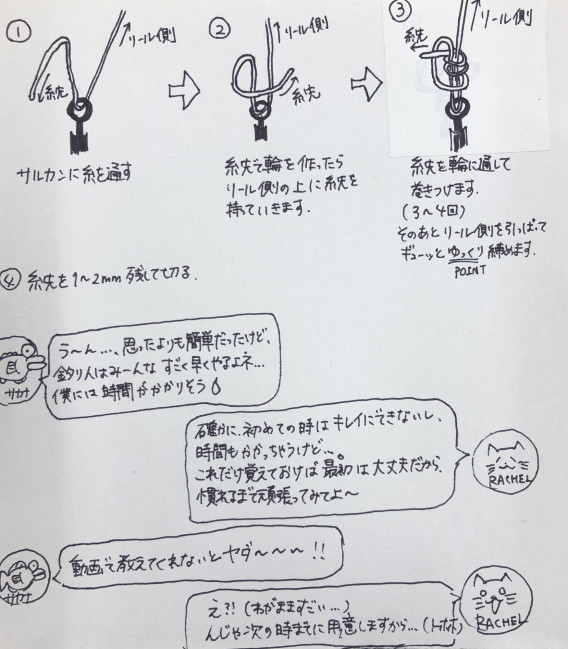 ①
リール側
糸先
サルカンに糸を通す
②
リール側
糸先
糸先で輪を作ったら
リール側の上に糸先を
持っていきます.
③
リール側
糸先
糸先を輪に通して
巻きつけます.
(3〜4回)
そのあとリール側を引っぱって
ギューッとゆっくり締めます.
POINT
④ 糸先を1〜2mm残して切る.
う〜ん…、思ったよりも簡単だったけど、
釣り人はみーんな すごく早くやるよネ…
僕には時間がかかりそう
サカナ
確かに初めての時はキレイにできないし、
時間もかかっちゃうけど…。
これだけ覚えておけば最初は大丈夫だから、
慣れるまで頑張ってみてよ〜
RACHEL
動画で教えてくれないとヤダ〜〜〜!!
サカナ
え?!(わがまますぎぃ…)
んじゃ次の時までに用意しますから…(トホホ)
RACHEL